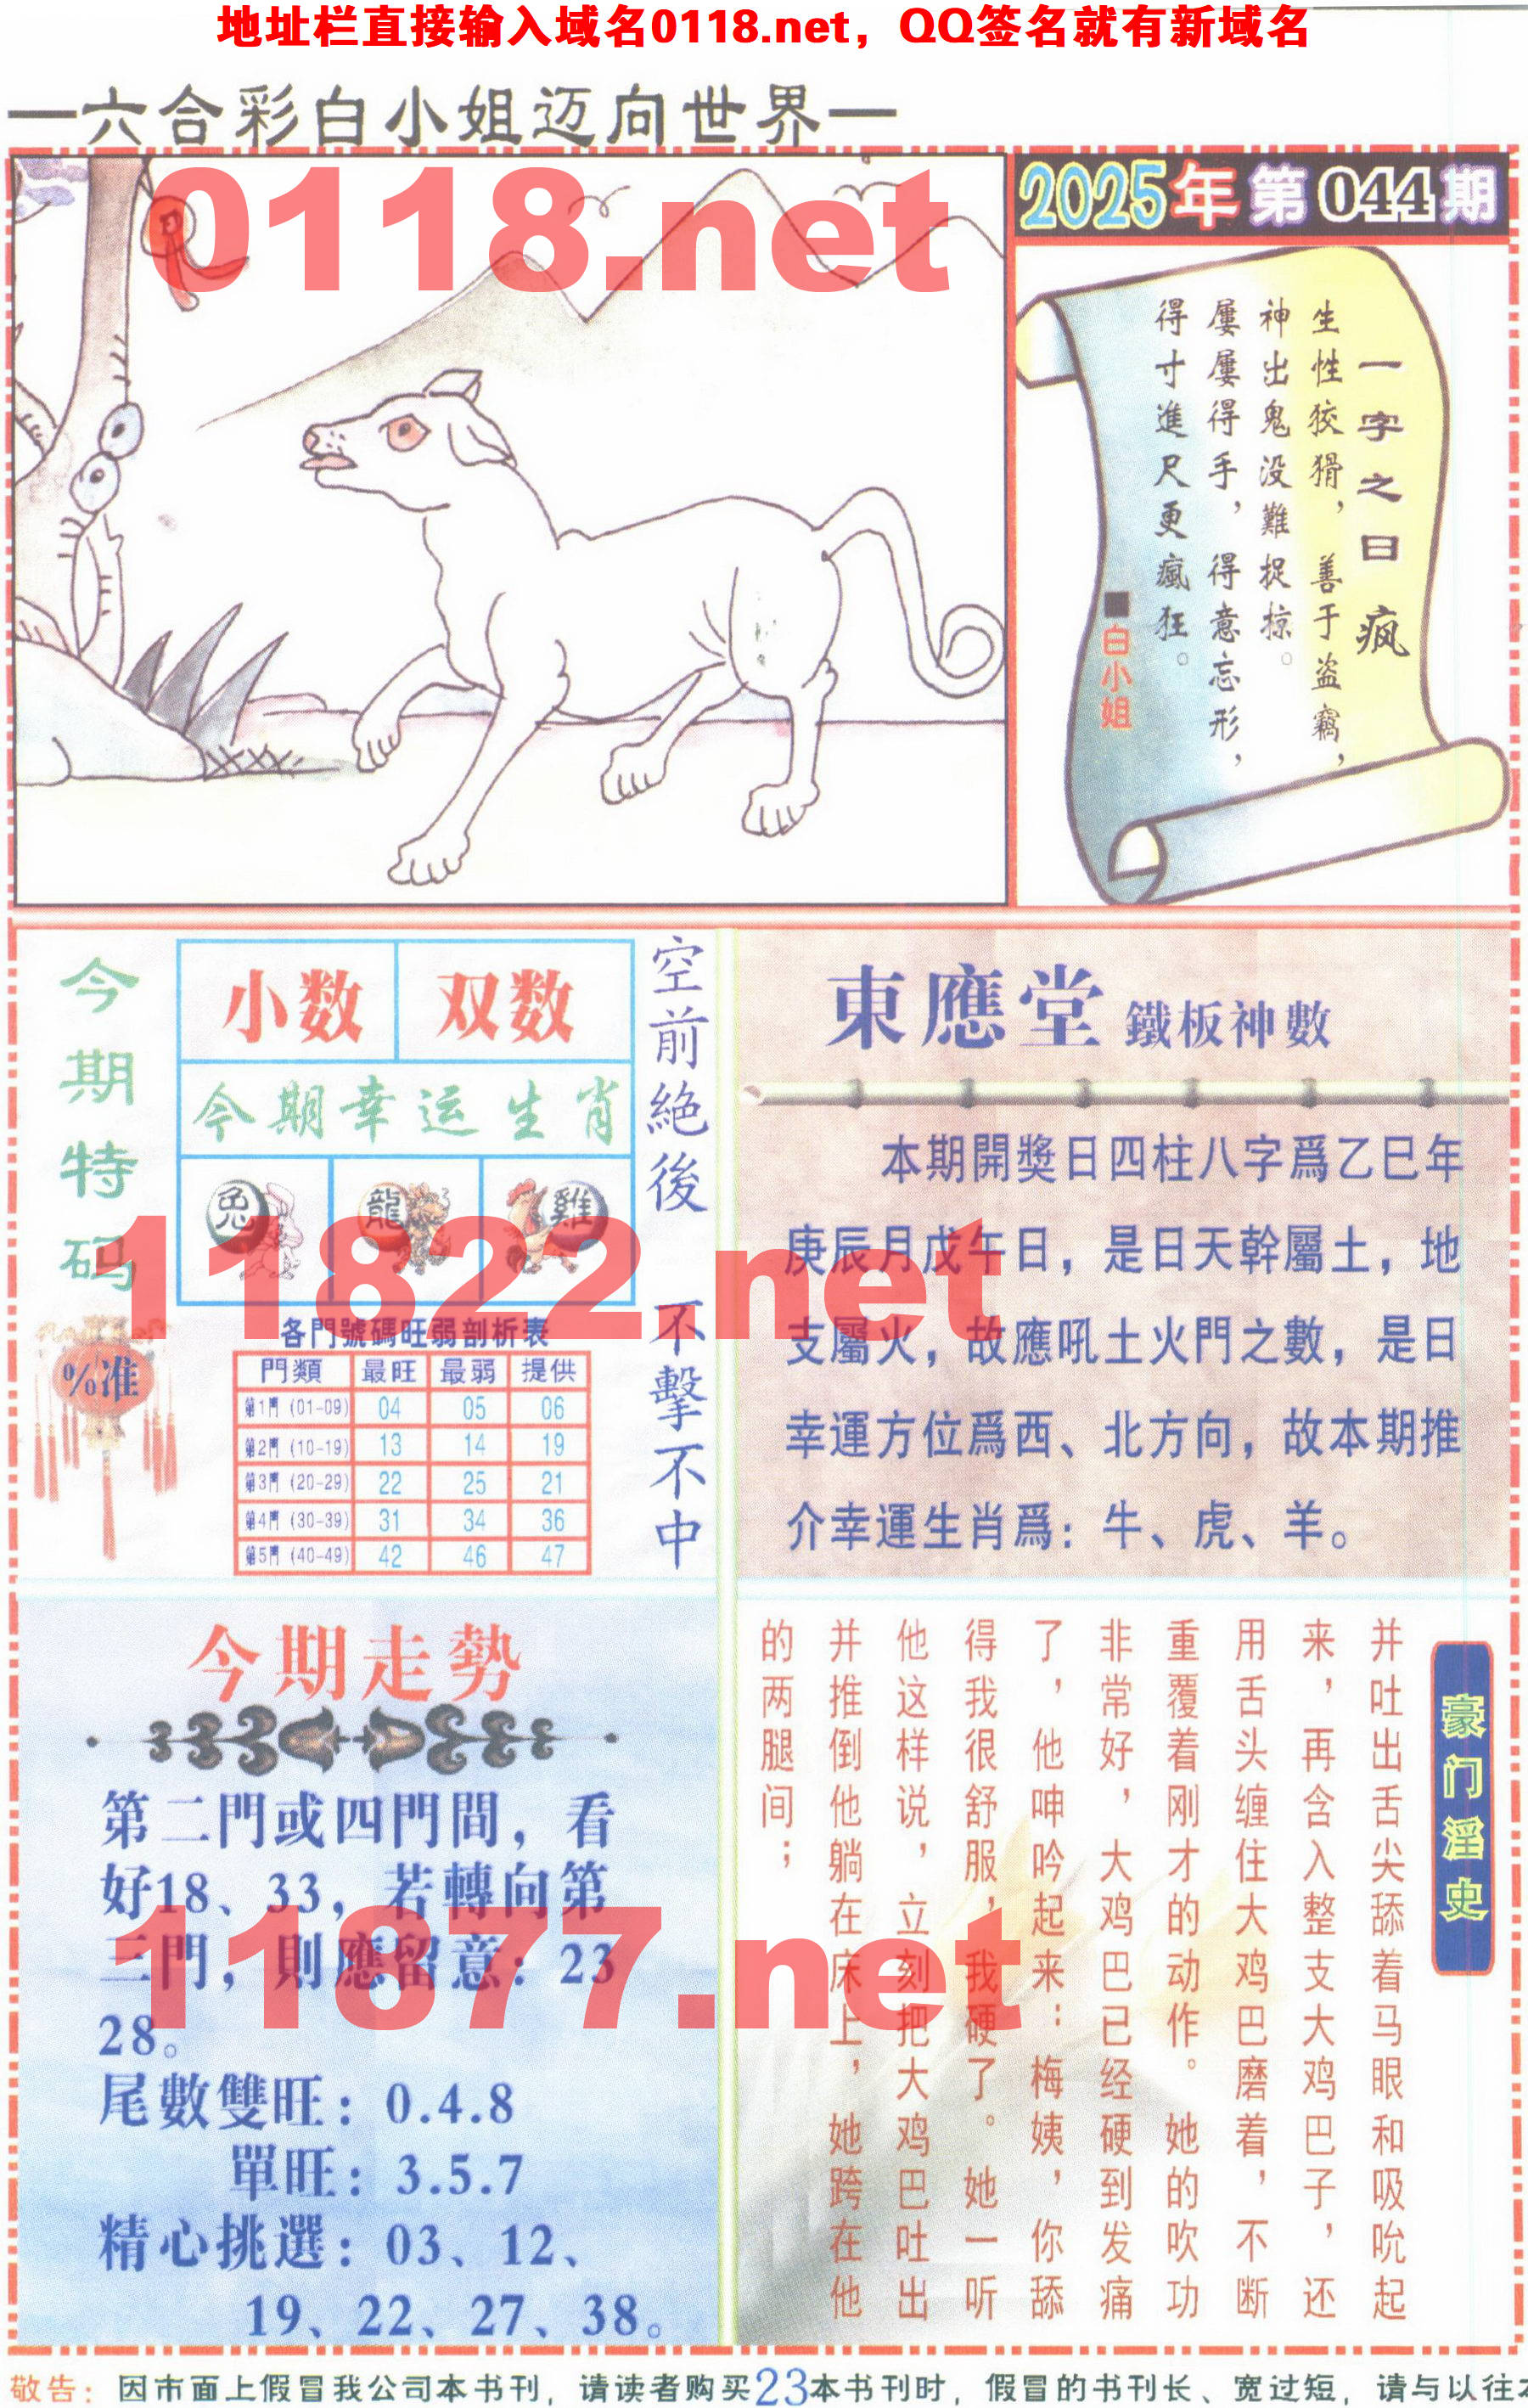 地址栏直接输入域名0118.net，QQ签名就有新域名
—六合彩白小姐迈向世界—
0118.net
2025年第044期
一字之曰 疯
生性狡猾，善于盗竊，
神出鬼没難捉掠。
屢屢得手，得意忘形，
得寸進尺更瘋狂。
■白小姐
今期特码
%准
小数 双数
今期幸运生肖
兔 龍 雞
空前絶後 不擊不中
11822.net
各門號碼旺弱剖析表
門類 最旺 最弱 提供
第1門 (01-09) 04 05 06
第2門 (10-19) 13 14 19
第3門 (20-29) 22 25 21
第4門 (30-39) 31 34 36
第5門 (40-49) 42 46 47
東應堂 鐵板神數
本期開獎日四柱八字爲乙巳年
庚辰月戊午日，是日天幹屬土，地
支屬火，故應吼土火門之數，是日
幸運方位爲西、北方向，故本期推
介幸運生肖爲：牛、虎、羊。
今期走勢
第二門或四門間，看
好18、33，若轉向第
三門，則應留意：23
28。
尾數雙旺：0.4.8
單旺：3.5.7
精心挑選：03、12、
19、22、27、38。
11877.net
豪门淫史
并吐出舌尖舔着马眼和吸吮起
来，再含入整支大鸡巴子，还
用舌头缠住大鸡巴磨着，不断
重覆着刚才的动作。她的吹功
非常好，大鸡巴已经硬到发痛
了，他呻吟起来：梅姨，你舔
得我很舒服，我硬了。她一听
他这样说，立刻把大鸡巴吐出
并推倒他躺在床上，她跨在他
的两腿间；
敬告：因市面上假冒我公司本书刊，请读者购买23本书刊时，假冒的书刊长、宽过短，请与以往